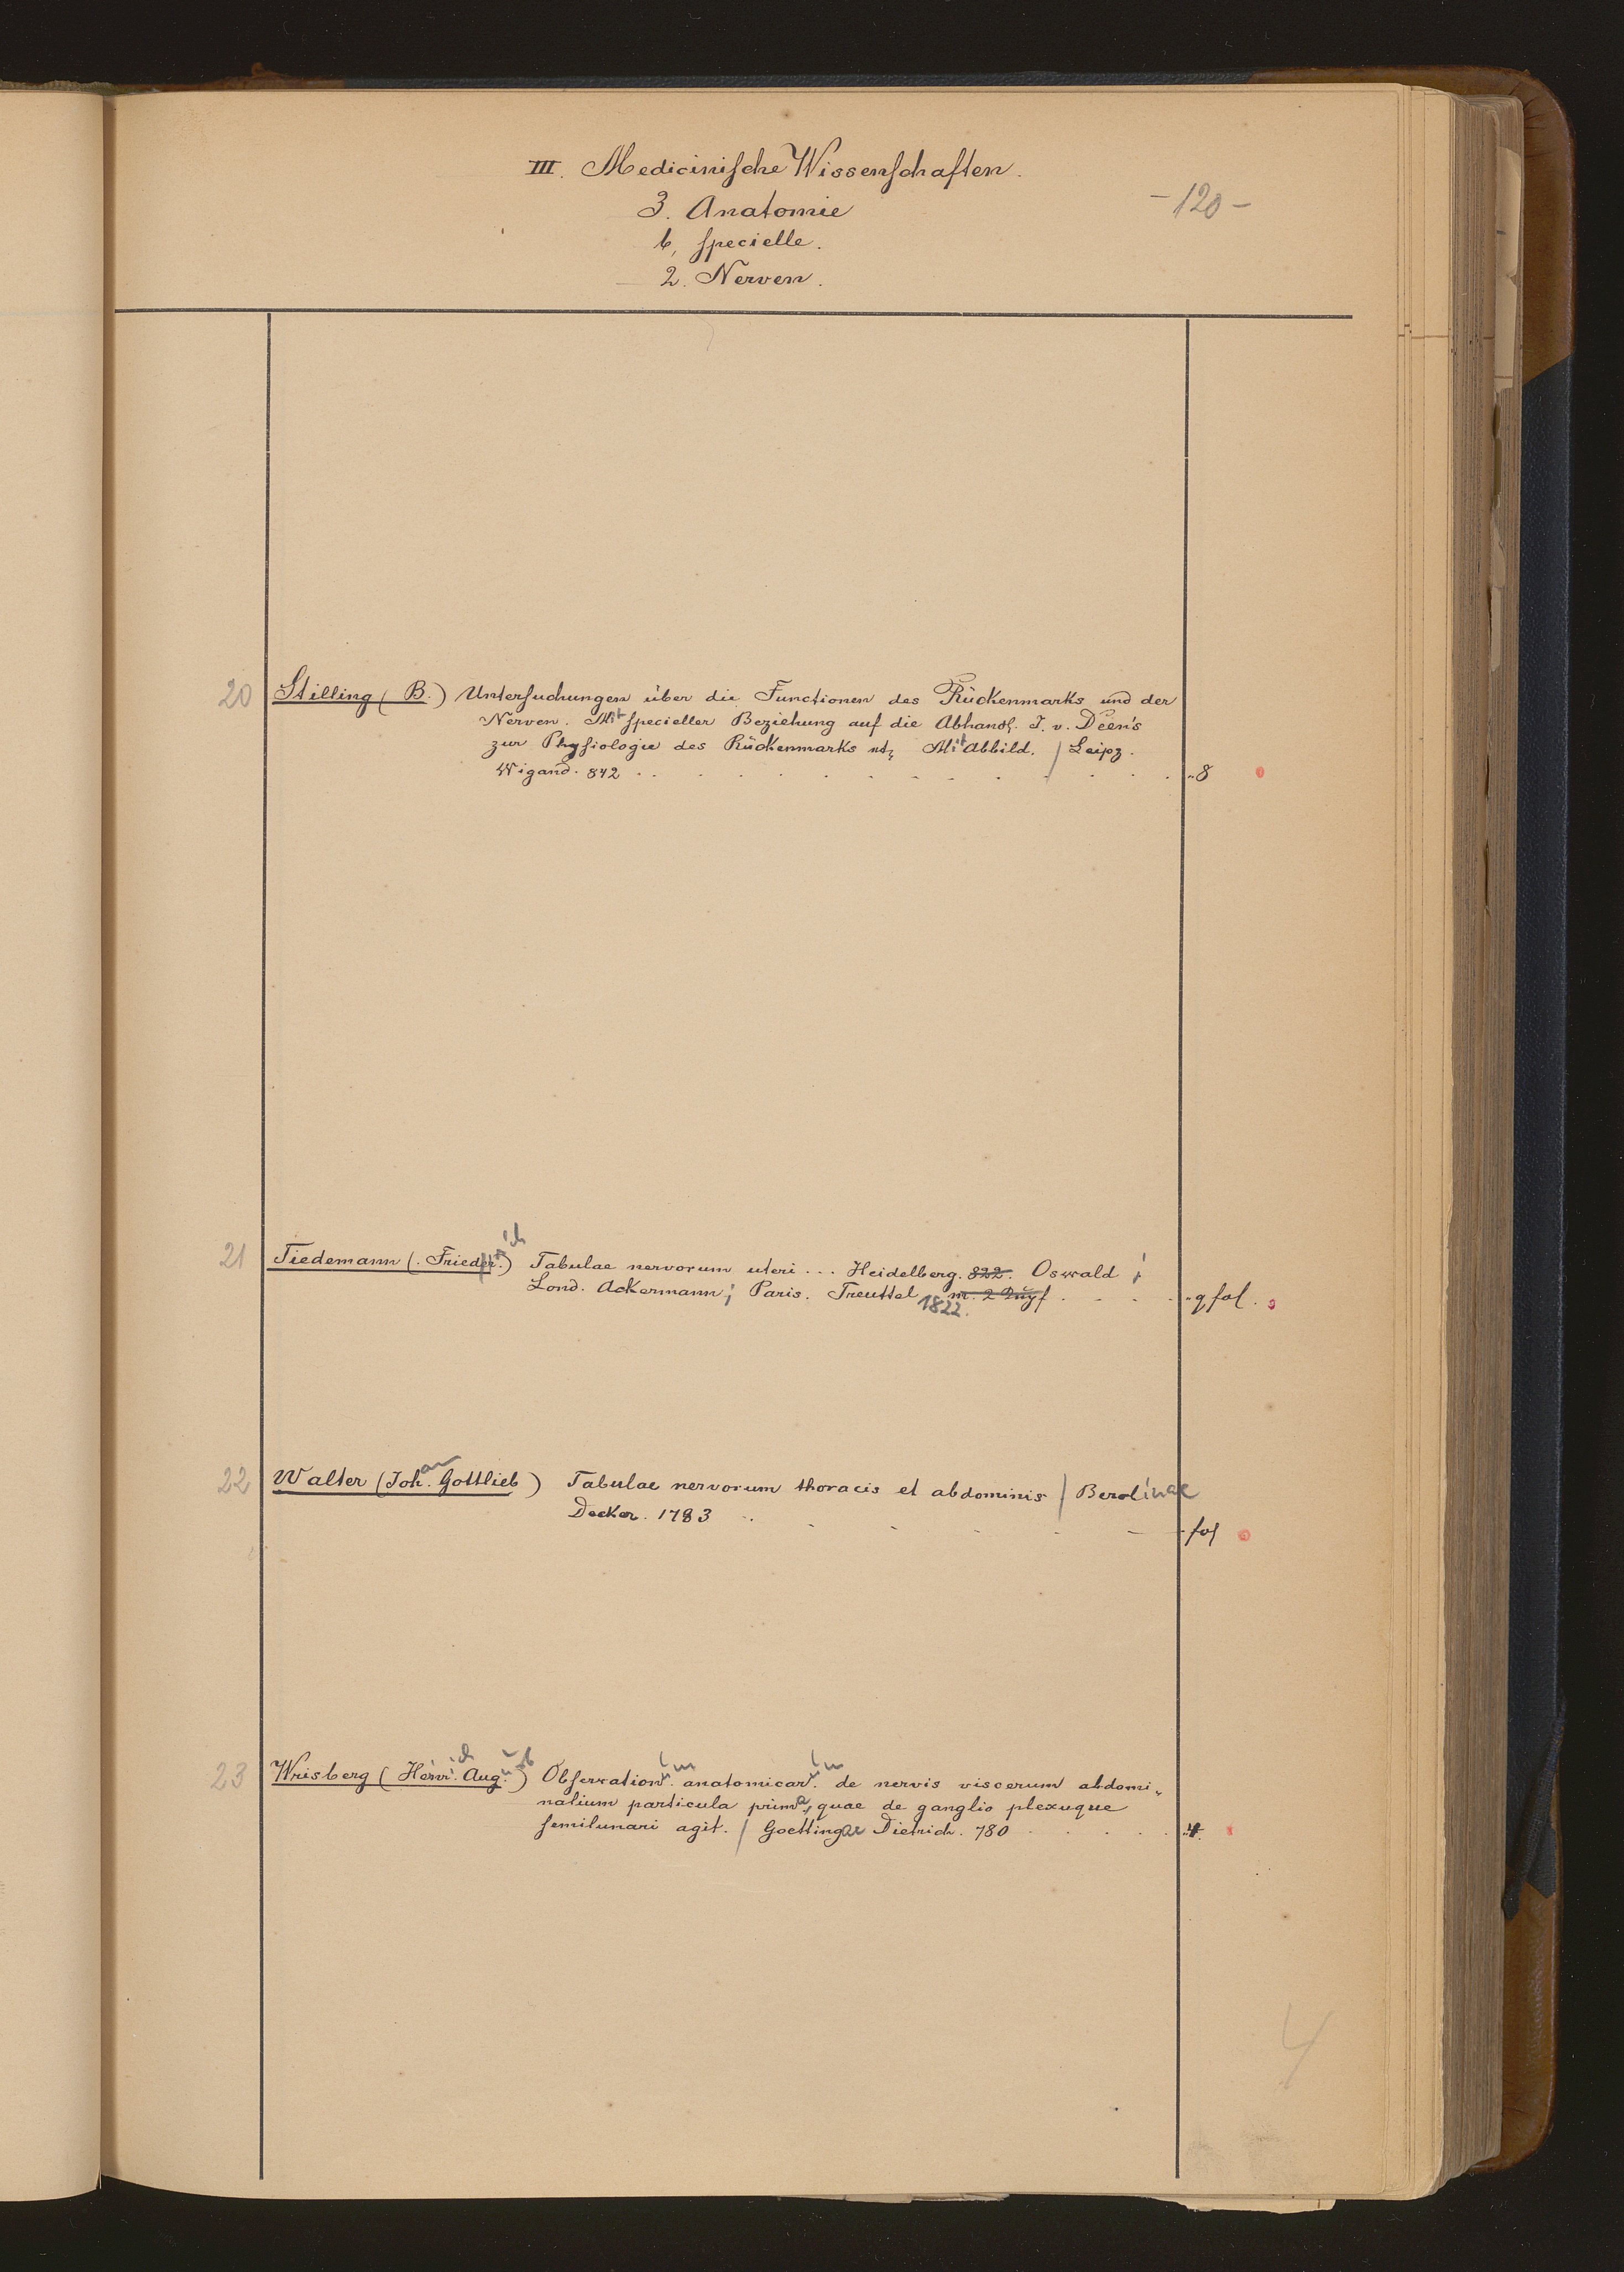 III. Medicinische Wissenschaften.
3. Anatomie
- 120 -
b, specielle.
2. Nerven.
20 Stilling (B.) Untersuchungen über die Functionen des Rückenmarks und der
Nerven. Mit specieller Beziehung auf die Abhandl. J. v. Deen's
zur Physiologie des Rückenmarks etc. Mit Abbild. / Leipz.
Wigand. 842 . . . . . . . . . . . . . 8
21 Tiedemann (Friedrich) Tabulae nervorum uteri ... Heidelberg. 822. Oswald;
Lond. Ackermann; Paris. Treuttel 1822. . . . . q fol.
22 Walter (Johan. Gottlieb) Tabulae nervorum thoracis et abdominis / Berolinae
Decker. 1783 . . . . . . fol
23 Wrisberg (Henrich August) Observationum anatomicarum de nervis viscerum abdomi-
nalium particula prima, quae de ganglio plexuque
semilunari agit. / Goettingae Dietrich. 780 . . . . . 4.
4